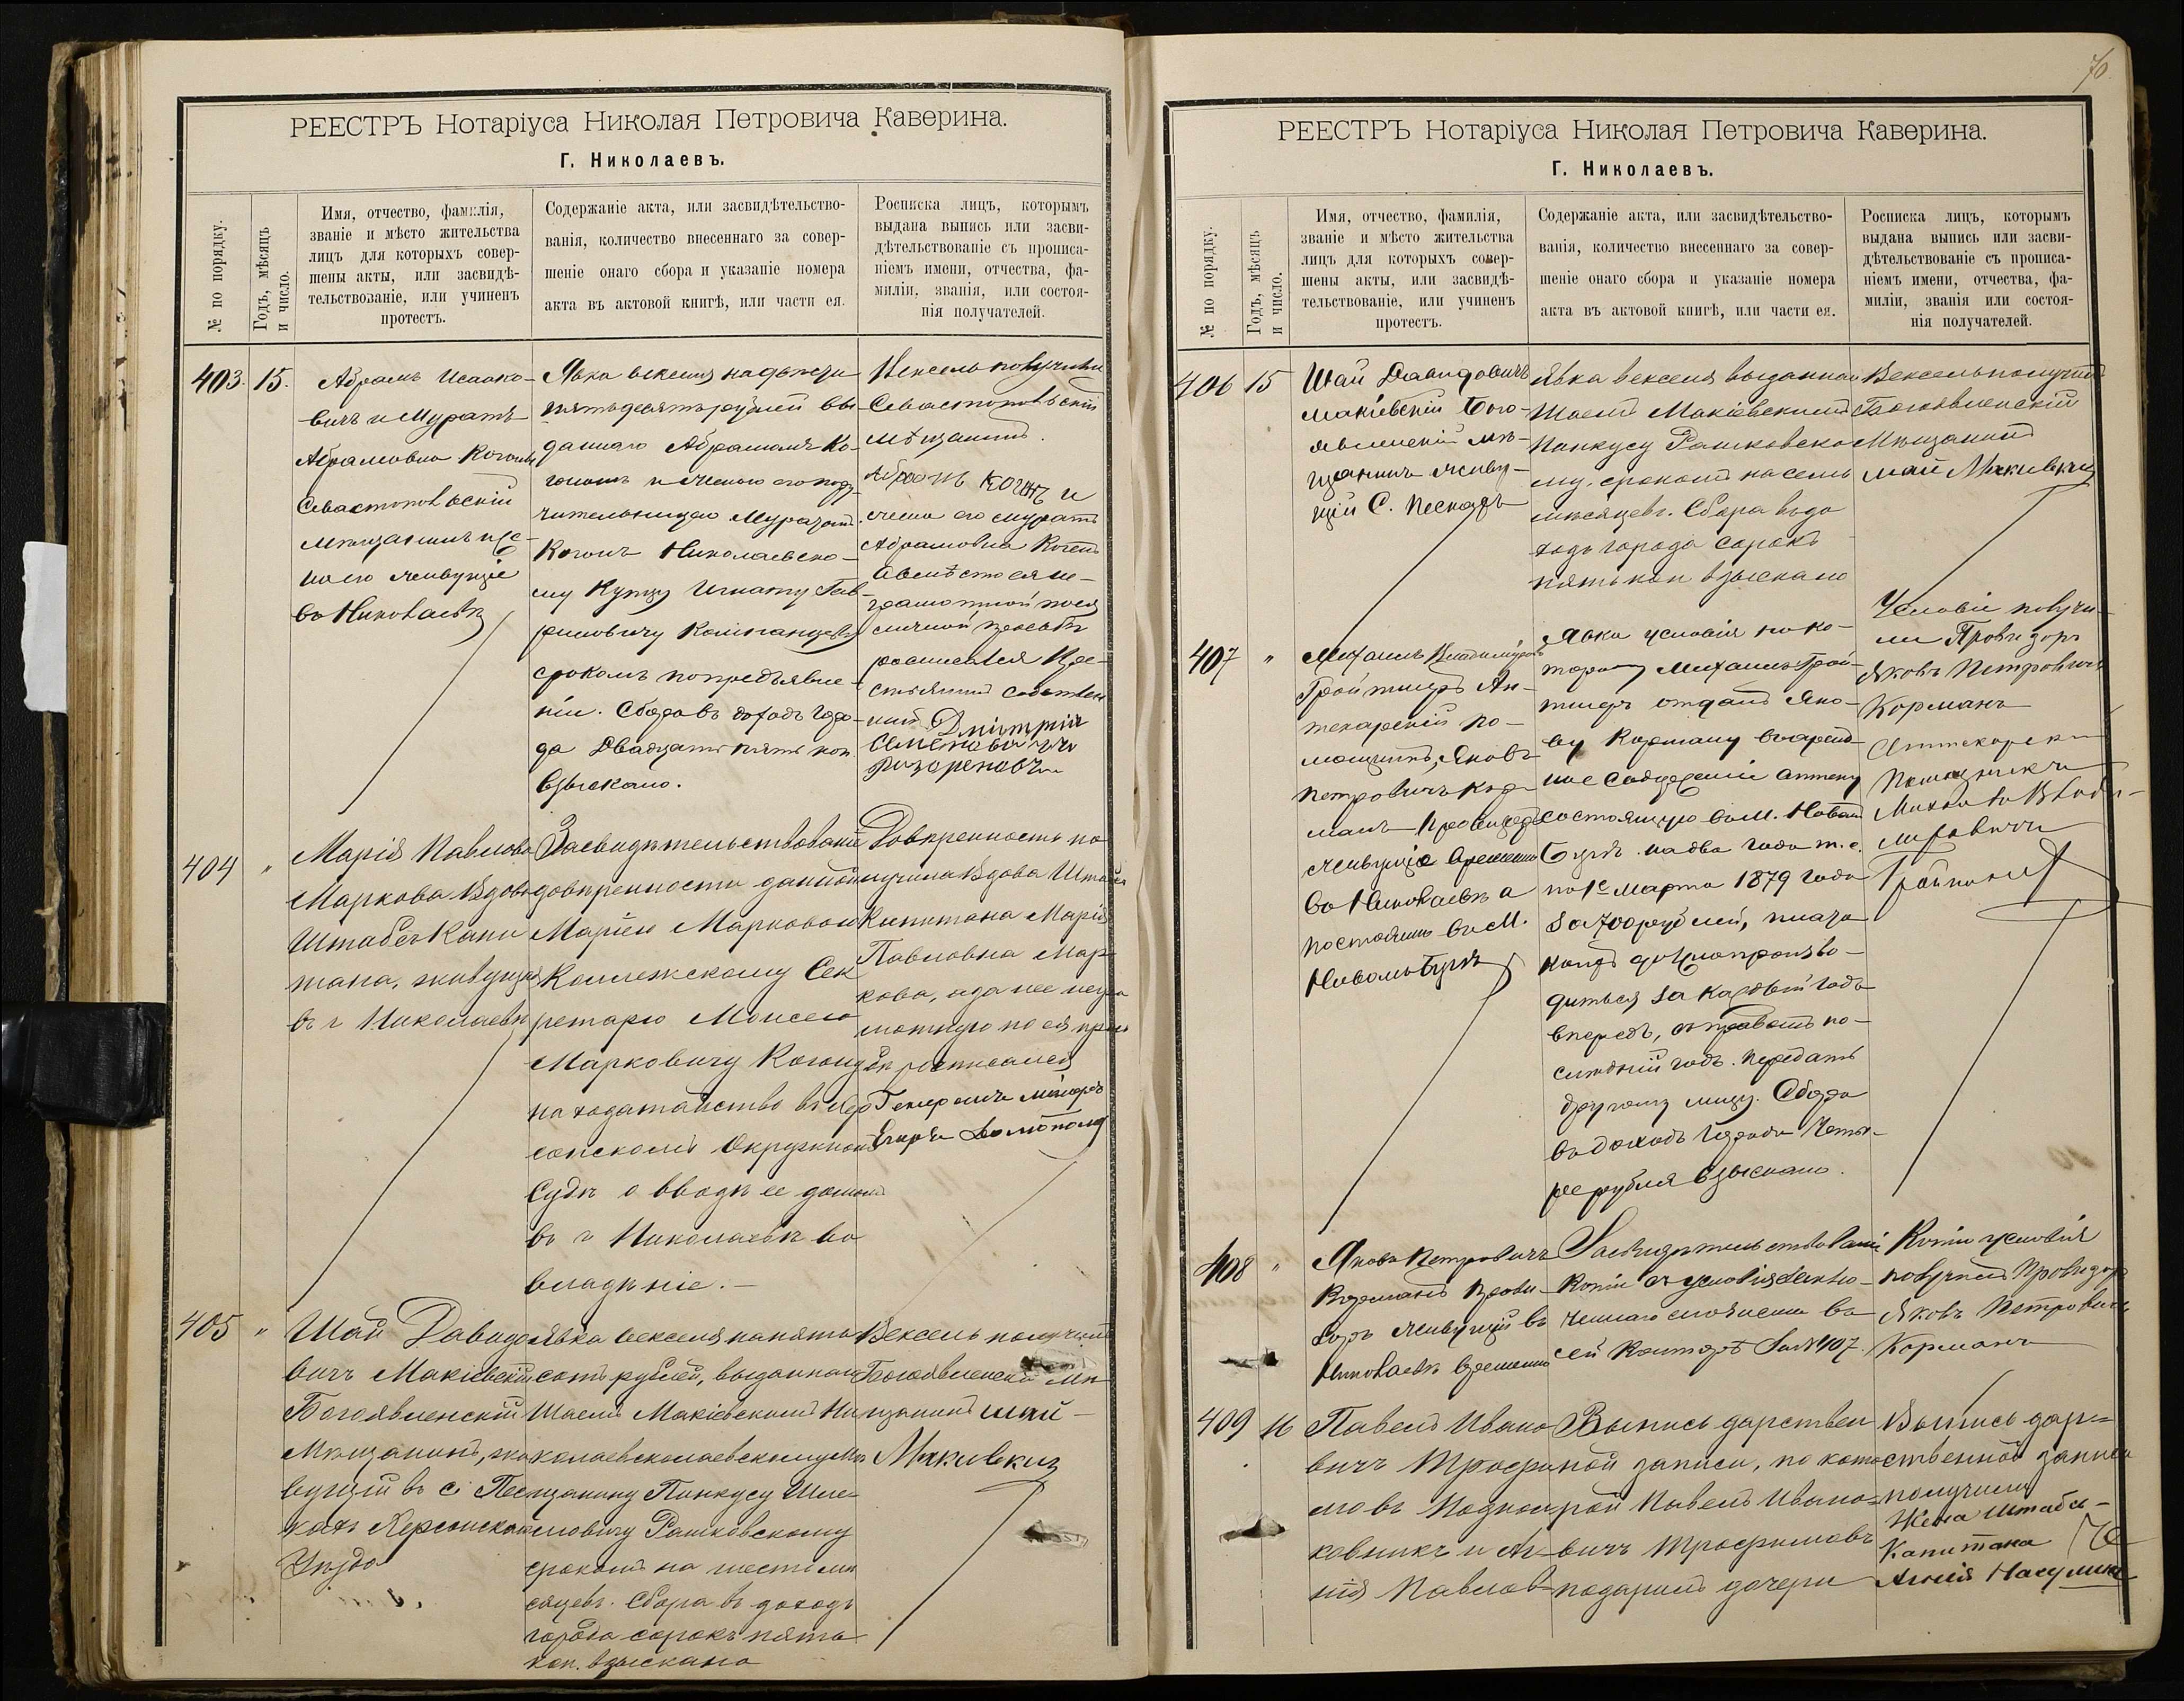 РЕЕСТРЪ Нотаріуса Николая Петровича Каверина.
Г. Николаевъ.
№ по порядку.
Годъ, мѣсяцъ
и число.
Имя, отчество, фамилія,
званіе и мѣсто жительства
лицъ для которыхъ совер-
шены акты, или засвидѣ-
тельствованіе, или учиненъ
протестъ.
Содержаніе акта, или засвидѣтельство-
ванія, количество внесеннаго за совер-
шеніе онаго сбора и указаніе номера
акта въ актовой книгѣ, или части ея.
Росписка лицъ, которымъ
выдана выпись или засви-
дѣтельствованіе съ прописа-
ніемъ имени, отчества, фа-
миліи, званія, или состоя-
нія получателей.
403. 15.
Абрамъ Исаако-
вичъ и Муратъ
Абрамовна Когонъ
Севастопольскій
мѣщанинъ и же-
на его живущіе
въ Николаевѣ
Явка векселя на двѣсти
пятьдесятъ рублей вы-
даннаго Абрамомъ Ко-
гономъ и женою его пору-
чительницею Муратъ
Когонъ Николаевско-
му Купцу Игнату Гав-
риловичу Компанцеву
срокомъ по предъявле-
ніи. Сбора въ доходъ горо-
да двадцать пять коп
взыскано.
Вексель получили
Севастопольскій
мѣщанинъ.
Абрамъ Когнъ и
жена его Муратъ
Абрамовна Когенъ
а вмѣсто ея не-
грамотной по ея
личной просьбѣ
росписался Кре-
стьянинъ собствен-
ник Дмитрій
Семеновичъ
Разореновъ
404 "
Марія Павлова
Маркова Вдова
Штабсъ Капи
тана, живущая
въ г Николаевѣ
Засвидѣтельствованіе
довѣренности данной
Маріею Марковою
Коллежскому Сек
ретарю Моисею
Марковичу Когону
на ходатайство въ Хер
сонскомъ Окружномъ
Судѣ о вводѣ ее домомъ
въ г Николаевѣ во
владѣніе.—
Довѣренность по
лучила Вдова Штабсъ
Капитана Марія
Павловна Мар
кова, а за нее негра
мотную по ея прось
бѣ росписался
Генералъ маіоръ
Егоръ
405 "
Шай Давидо
вичъ Макіевскій
Богоявленскій
Мѣщанинъ, жи
вущій въ с. Пес
кахъ Херсонскаго
Уѣзда
Явка векселя на пять
сотъ рублей, выданнаго
Шаемъ Макіевскимъ Ни
колаевсколаевскому Мѣ
щанину Пинкусу Шле
мовичу Рашковскому
срокомъ на шесть мѣ
сяцевъ. Сбора въ доходъ
города сорокъ пять
коп. взыскано
Вексель получилъ
Богоявленскій Мѣ
щанинъ Шай
Макивкиз
70
РЕЕСТРЪ Нотаріуса Николая Петровича Каверина.
Г. Николаевъ.
№ по порядку.
Годъ, мѣсяцъ
и число.
Имя, отчество, фамилія,
званіе и мѣсто жительства
лицъ для которыхъ совер-
шены акты, или засвидѣ-
тельствованіе, или учиненъ
протестъ.
Содержаніе акта, или засвидѣтельство-
ванія, количество внесеннаго за совер-
шеніе онаго сбора и указаніе номера
акта въ актовой книгѣ, или части ея.
Росписка лицъ, которымъ
выдана выпись или засви-
дѣтельствованіе съ прописа-
ніемъ имени, отчества, фа-
миліи, званія или состоя-
нія получателей.
406 15
Шай Давидовичъ
Макіевскій Бого-
явленскій мѣ-
щанинъ живу-
щій С. Пескахъ
Явка векселя выданнаго
Шаемъ Макіевскимъ
Пинкусу Рашковско
му, срокомъ на семь
мѣсяцевъ. Сбора въ до
ходъ города сорокъ
пять коп взыскано
Вексель получилъ
Богоявленскій
Мѣщанинъ
май Макивкиз
407 "
Михаилъ Владиміровъ
Гройтигеръ Ап-
текарскій по-
мощникъ, Яковъ
Петровичъ Кор
манъ Провизоръ
живущіе временно
въ Николаевѣ а
постоянно въ М.
Новомъ Бугѣ
Явка условія по ко-
торому Михаилъ Грой-
тигеръ отдалъ Яко-
ву Корману въ аренд-
ное содержаніе аптеку
состоящую въ М. Новомъ
Бугѣ. на два года т. е.
по 1е Марта 1879 года
за 700 рублей, плата
коихъ должна произво-
диться за каждый годъ
впередъ, съ правомъ по-
слѣдній годъ. передать
другому лицу. Сбора
въ доходъ города четы-
ре рубля взыскано.
Условіе получи-
ли Провизоръ
Яковъ Петровичъ
Корманъ
Аптекарскій
Помощникъ
Михаилъ Влади-
мировичъ
408 "
Яковъ Петровичъ
Корманъ Прови-
зоръ живущій въ
Николаевѣ временно
Засвидѣтельствованіе
копіи съ условія заклю-
ченнаго и явленнаго въ
сей конторѣ за №407.
Копію условія
получилъ Провизоръ
Яковъ Петровичъ
Корманъ
409 16
Павелъ Ивано
вичъ Трофи
мовъ Подпол
ковникъ и Ан-
нія Павлов-
Выпись дарствен
ной записи, по кото
рой Павелъ Ивано-
вичъ Трофимовъ
подарилъ дочери
Выпись дар=
ственной записи
получила
Жена Штабсъ-
Капитана
Аннія